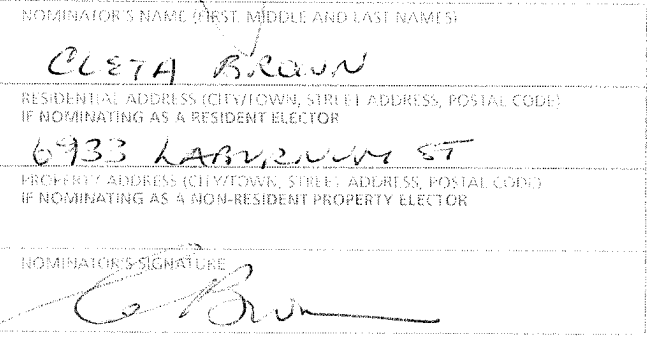 NOMINATOR'S NAME (FIRST, MIDDLE AND LAST NAMES)
CLETA BROWN
RESIDENTIAL ADDRESS (CITY/TOWN, STREET ADDRESS, POSTAL CODE)
IF NOMINATING AS A RESIDENT ELECTOR
6933 LABURNUM ST
PROPERTY ADDRESS (CITY/TOWN, STREET ADDRESS, POSTAL CODE)
IF NOMINATING AS A NON-RESIDENT PROPERTY ELECTOR
NOMINATOR'S SIGNATURE
C Brown